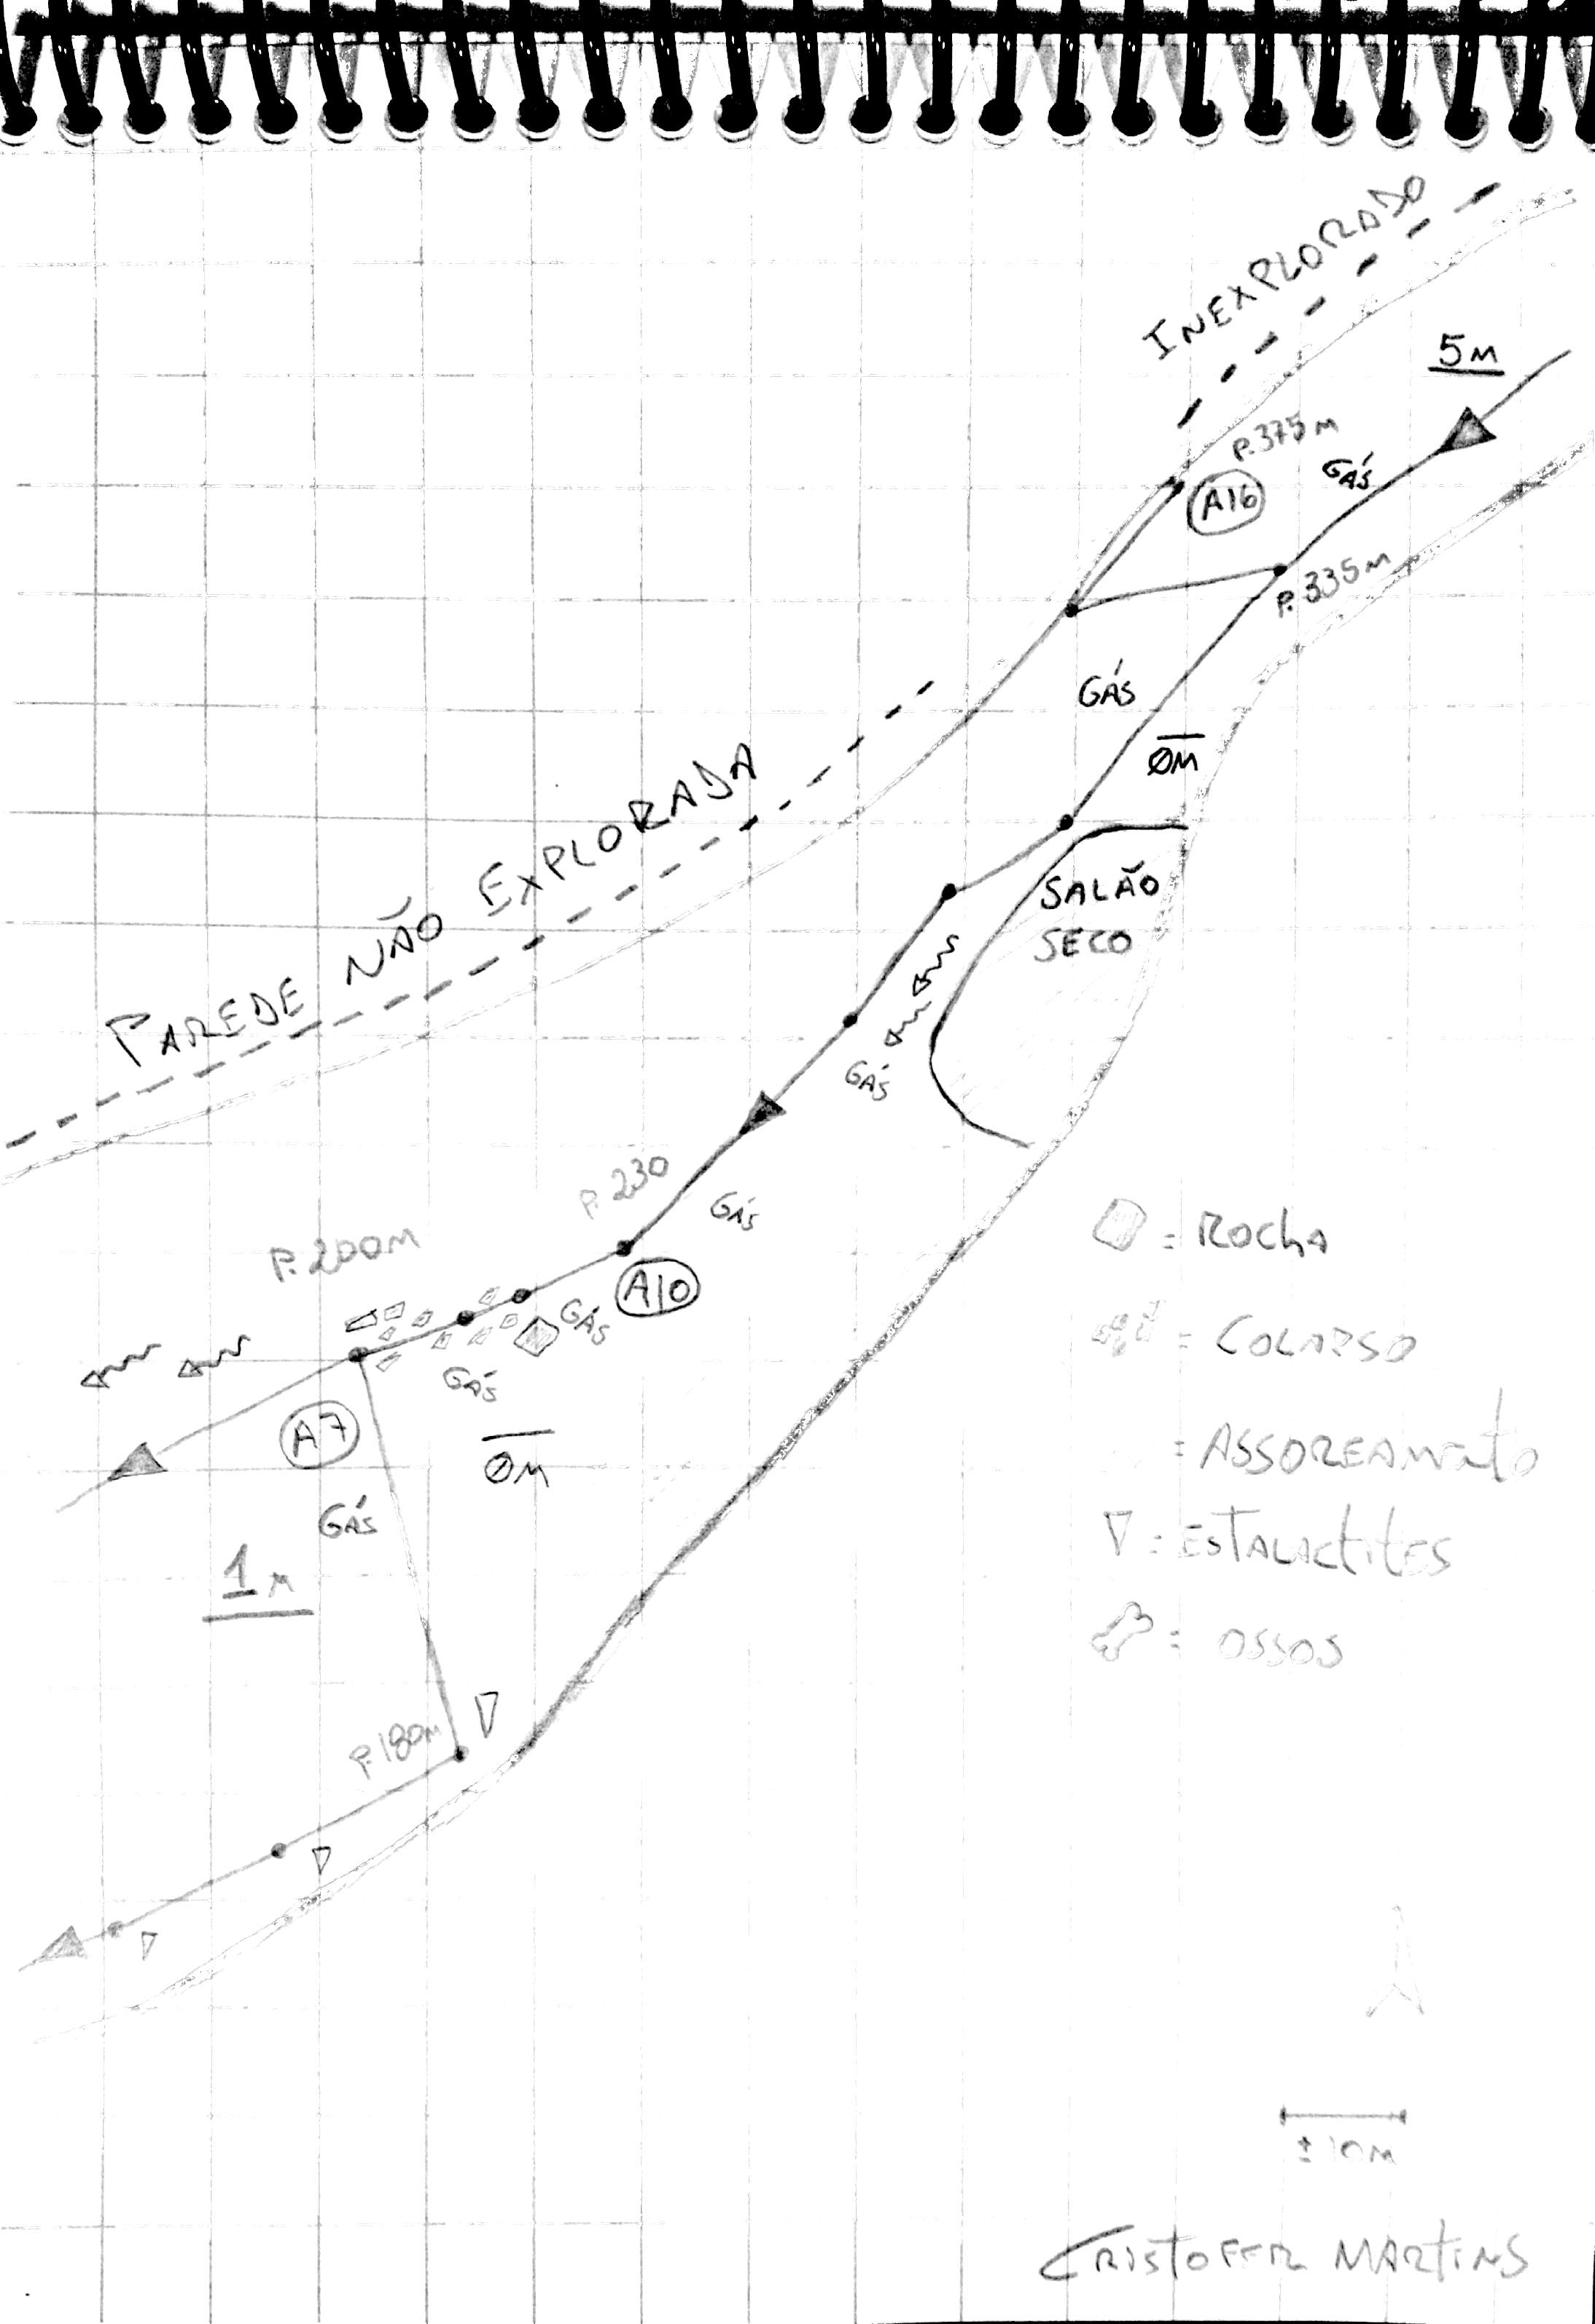 INEXPLORADO
5M
P.375M
GÁS
A16
P.335M
GÁS
ØM
PAREDE NÃO EXPLORADA
SALÃO
SECO
GÁS
P.230
GÁS
P.200M
A10
GÁS
GÁS
A7
ØM
GÁS
1M
P.180M
= ROCHA
= COLAPSO
= ASSOREAMENTO
= ESTALACTITES
= OSSOS
± 10M
CRISTOFER MARTINS